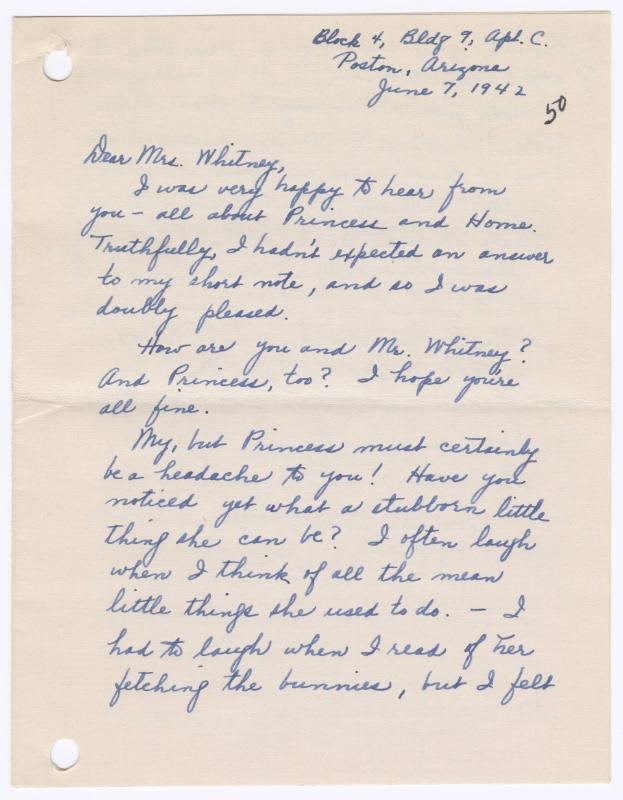 Block 4, Bldg 9, Apt. C.
Poston, Arizona
June 7, 1942
50
Dear Mrs. Whitney,
I was very happy to hear from
you - all about Princess and Home.
Truthfully, I hadn't expected an answer
to my short note, and so I was
doubly pleased.
How are you and Mr. Whitney?
And Princess, too? I hope you're
all fine.
My, but Princess must certainly
be a headache to you! Have you
noticed yet what a stubborn little
thing she can be? I often laugh
when I think of all the mean
little things she used to do. - I
had to laugh when I read of her
fetching the bunnies, but I felt